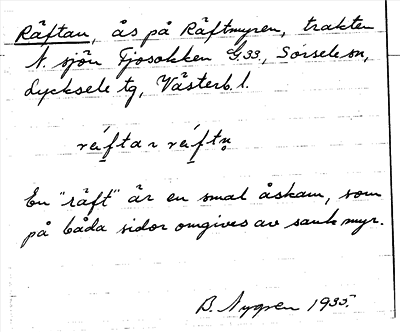 Räftan, ås på Räftmyren, trakten
N. sjön Gjosokken G33, Sorsele sn,
Lycksele tg, Västerb. l.
En "räft" är en smal åskam, som
på båda sidor omgives av sank myr.
B. Nygren 1935.